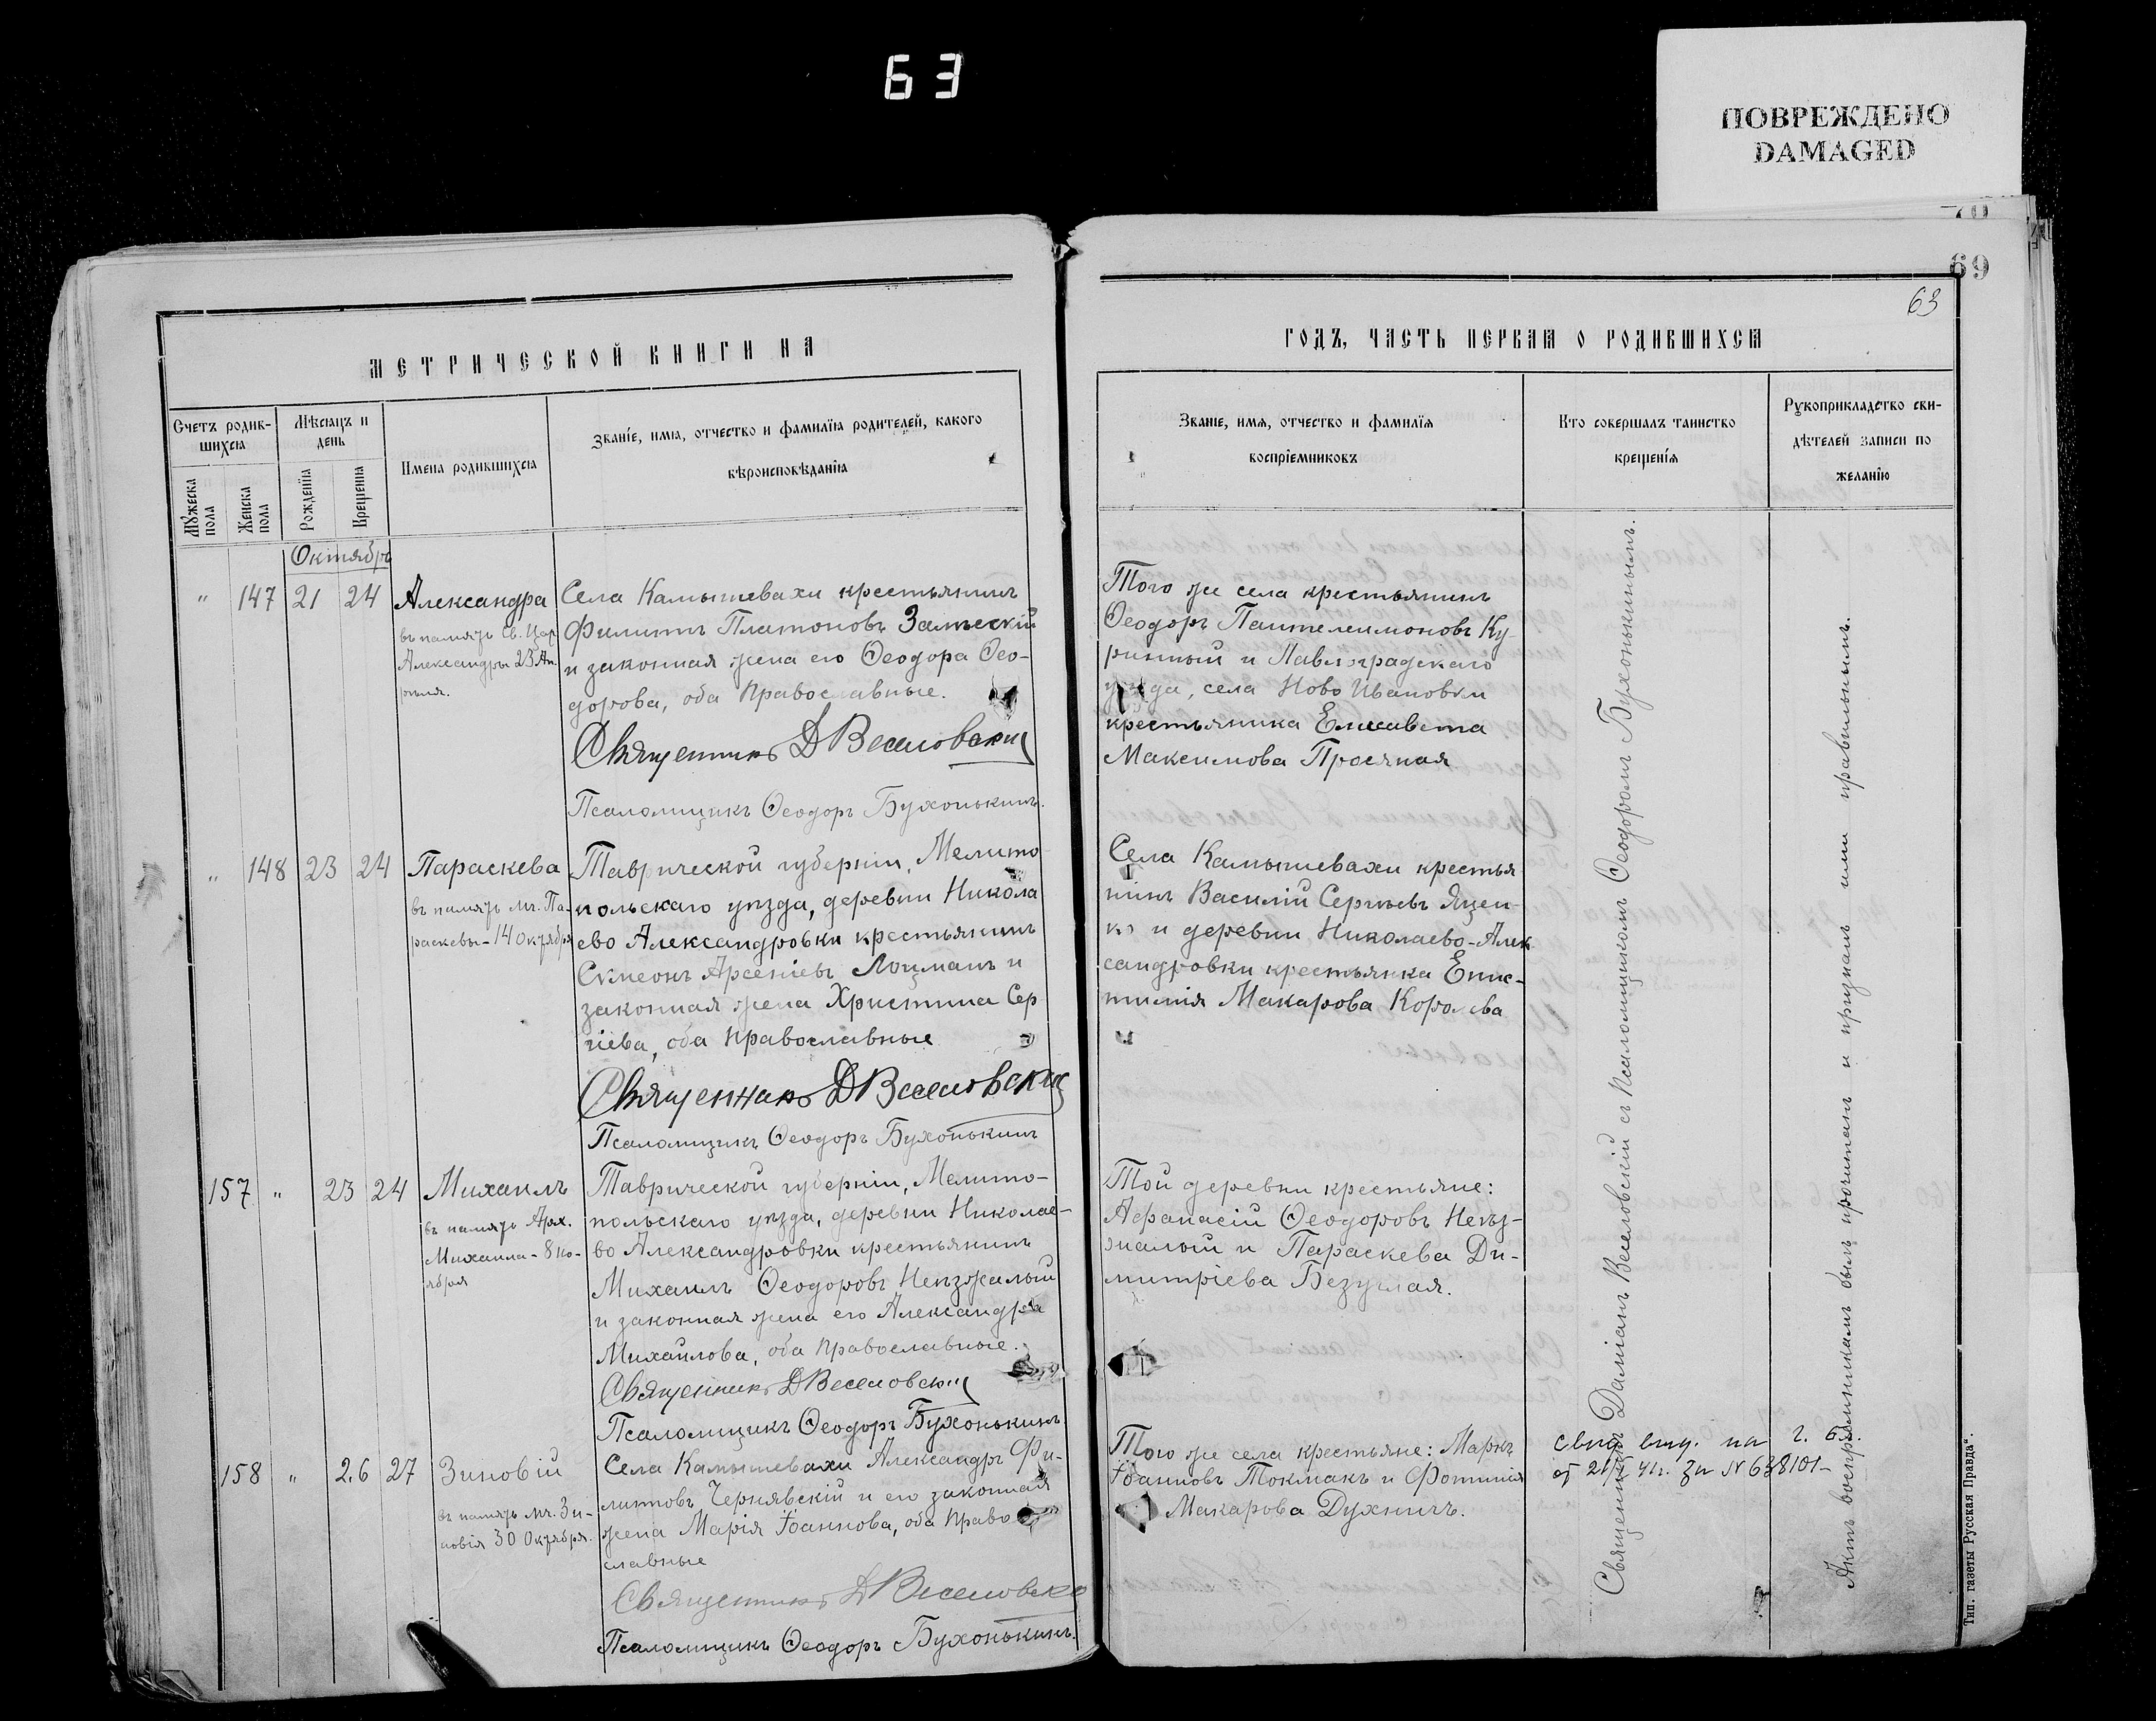 63
ПОВРЕЖДЕНО
DAMAGED
70
69
63
МЕТРИЧЕСКОЙ КНИГИ НА
ГОДЪ, ЧАСТЬ ПЕРВАЯ О РОДИВШИХСЯ
Счетъ родив-
шихся
Мѣсяцъ и
день
Мужеска
пола
Женска
пола
Рожденія
Крещенія
Имена родившихся
Званіе, имя, отчество и фамилія родителей, какого
вѣроисповѣданія
Званіе, имя, отчество и фамилія
воспріемниковъ
Кто совершалъ таинство
крещенія
Рукоприкладство сви-
дѣтелей записи по
желанію
Октябрь
" 147 21 24 Александра
въ память Св. Цар.
Александры 23 Ап-
рѣля.
Села Камышевахи крестьянинъ
Филиппъ Платоновъ Залѣскій
и законная жена его Ѳеодора Ѳео-
дорова, оба православные.
Священникъ Д Веселовскій
Псаломщикъ Ѳеодоръ Бухонькинъ.
Того же села крестьянинъ
Ѳеодоръ Пантелеимоновъ Ку-
ринный и Павлоградскаго
уѣзда, села Ново Ивановки
крестьянка Елисавета
Максимова Просяная
" 148 23 24 Параскева
въ память мч. Па-
раскевы - 14 Октября
Таврической губерніи, Мелито-
польскаго уѣзда, деревни Никола
ево Александровки крестьянинъ
Симеонъ Арсеніевъ Лоцманъ и
законная жена Христина Сер
гіева, оба православные
Священникъ Д Веселовскій
Псаломщикъ Ѳеодоръ Бухонькинъ
Села Камышевахи крестья
нинъ Василій Сергѣевъ Яцен-
ко и деревни Николаево-Алек
сандровки крестьянка Епис-
тимія Макарова Королева
157 " 23 24 Михаилъ
въ память Арх.
Михаила - 8 но-
ября
Таврической губерніи, Мелито-
польскаго уѣзда, деревни Николае-
во Александровки крестьянинъ
Михаилъ Ѳеодоровъ Неѣзжалый
и законная жена его Александра
Михайлова, оба православные.
Священникъ Д Веселовскій
Псаломщикъ Ѳеодоръ Бухонькинъ
Той деревни крестьяне:
Аѳанасій Ѳеодоровъ Неѣз-
жалый и Параскева Ди-
митріева Безуглая.
158 " 26 27 Зиновій
въ память мч. Зи-
новія 30 Октября.
Села Камышевахи Александръ Фи-
липповъ Чернявскій и его законная
жена Марія Іоаннова, оба право
славные
Священникъ Д Веселовскій
Псаломщикъ Ѳеодоръ Бухонькинъ.
Того же села крестьяне: Маркъ
Іоанновъ Токмакъ и Фотинія
Макарова Духничъ.
Священникъ Даміанъ Веселовскій съ Псаломщикомъ Ѳеодоромъ Бухонькинымъ.
Актъ воспріемникамъ былъ прочитанъ и признанъ ими правильнымъ.
№ 638101-
Тип. газеты „Русская Правда".